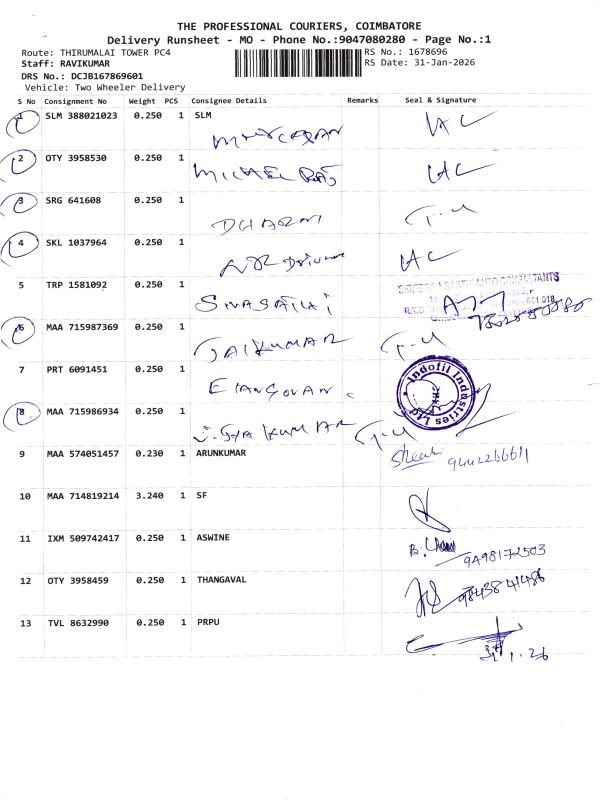 THE PROFESSIONAL COURIERS, COIMBATORE
Delivery Runsheet - MO - Phone No.:9047080280 - Page No.:1
Route: THIRUMALAI TOWER PC4 RS No.: 1678696
Staff: RAVIKUMAR RS Date: 31-Jan-2026
DRS No.: DCJB167869601
Vehicle: Two Wheeler Delivery
S No Consignment No Weight PCS Consignee Details Remarks Seal & Signature
1 SLM 388021023 0.250 1 SLM
2 OTY 3958530 0.250 1
MICHAEL RAJ
3 SRG 641608 0.250 1
DHARANI
4 SKL 1037964 0.250 1
5 TRP 1581092 0.250 1
SIVASAKTHI
AUTO CONSULTANTS
6 MAA 715987369 0.250 1
JAIKUMAR
7 PRT 6091451 0.250 1
ELANGOVAN.
Indofil Industries Ltd
8 MAA 715986934 0.250 1
9 MAA 574051457 0.230 1 ARUNKUMAR
9442266611
10 MAA 714819214 3.240 1 SF
11 IXM 509742417 0.250 1 ASWINE
9498172503
12 OTY 3958459 0.250 1 THANGAVAL
9843841486
13 TVL 8632990 0.250 1 PRPU